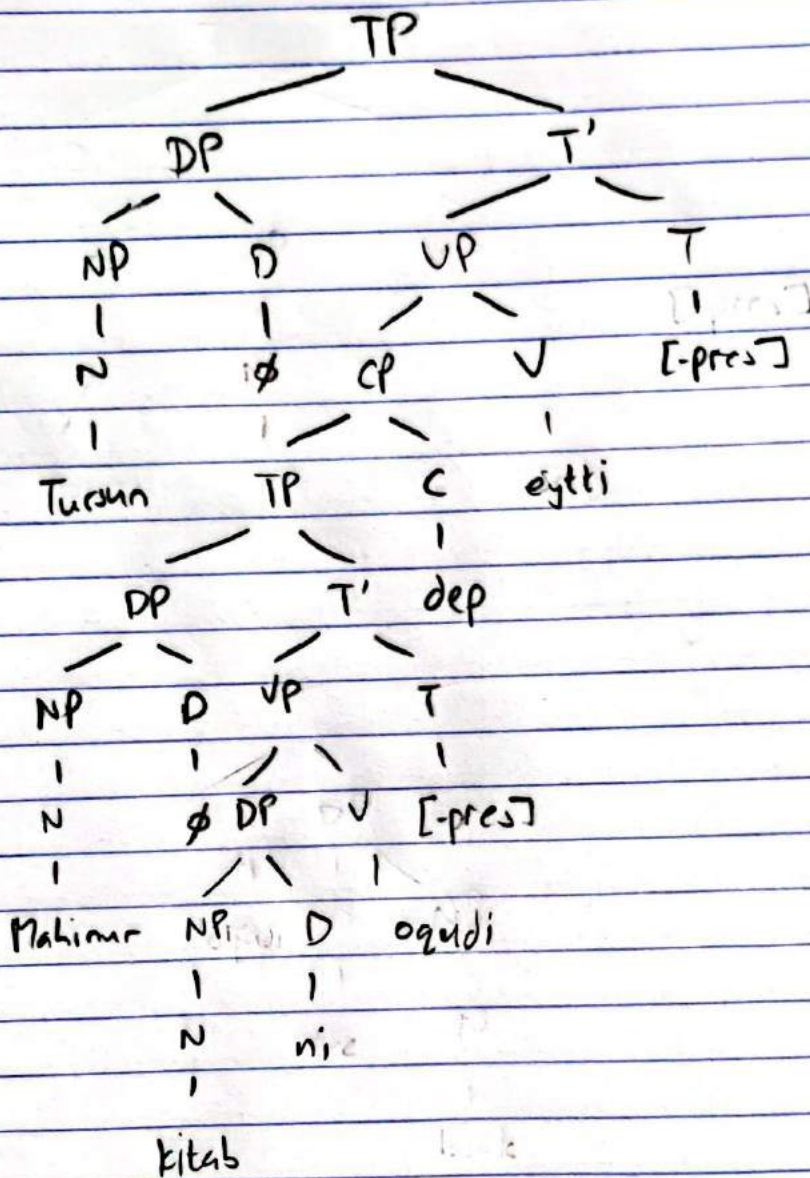 TP
DP T'
NP D VP T
N ø CP V [-pres]
Tursun TP C eytti
DP T' dep
NP D VP T
N ø DP V [-pres]
Mahinur NP D oqudi
N ni
kitab